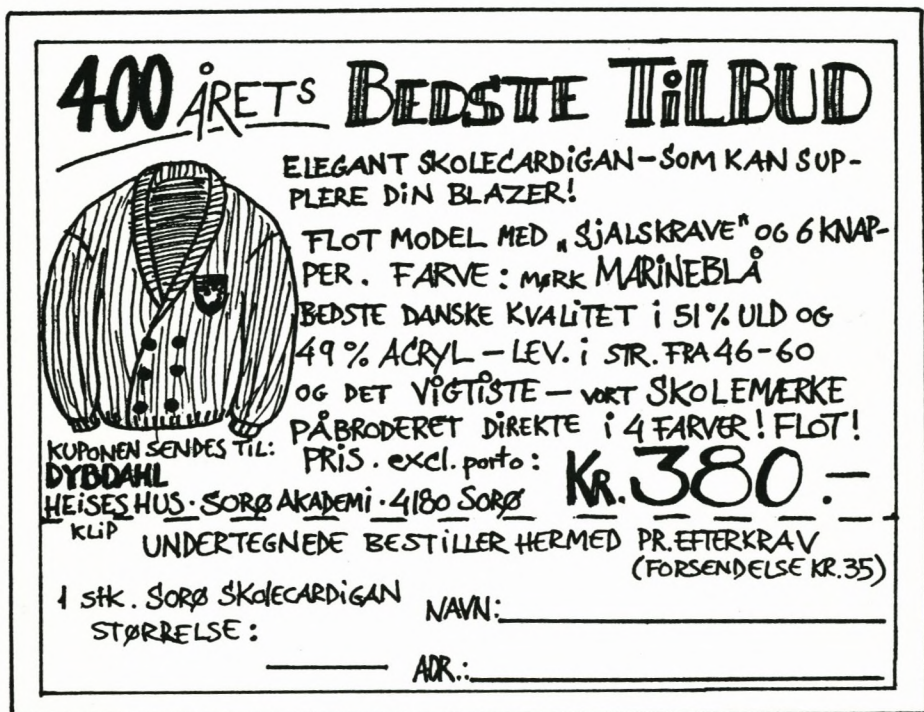 400 ÅRETS BEDSTE TILBUD
ELEGANT SKOLECARDIGAN - SOM KAN SUP-
PLERE DIN BLAZER!
FLOT MODEL MED „SJALSKRAVE" OG 6 KNAP-
PER. FARVE: MØRK MARINEBLÅ
BEDSTE DANSKE KVALITET i 51% ULD OG
49% ACRYL - LEV. i STR. FRA 46-60
OG DET VIGTISTE - VORT SKOLEMÆRKE
PÅBRODERET DIREKTE i 4 FARVER! FLOT!
PRIS. excl. porto: KR. 380.-
KUPONEN SENDES TIL:
DYBDAHL
HEISES HUS · SORØ AKADEMI · 4180 SORØ
KLIP
UNDERTEGNEDE BESTILLER HERMED PR. EFTERKRAV
(FORSENDELSE KR. 35)
1 stk. SORØ SKOLECARDIGAN
STØRRELSE:
NAVN:
ADR.: